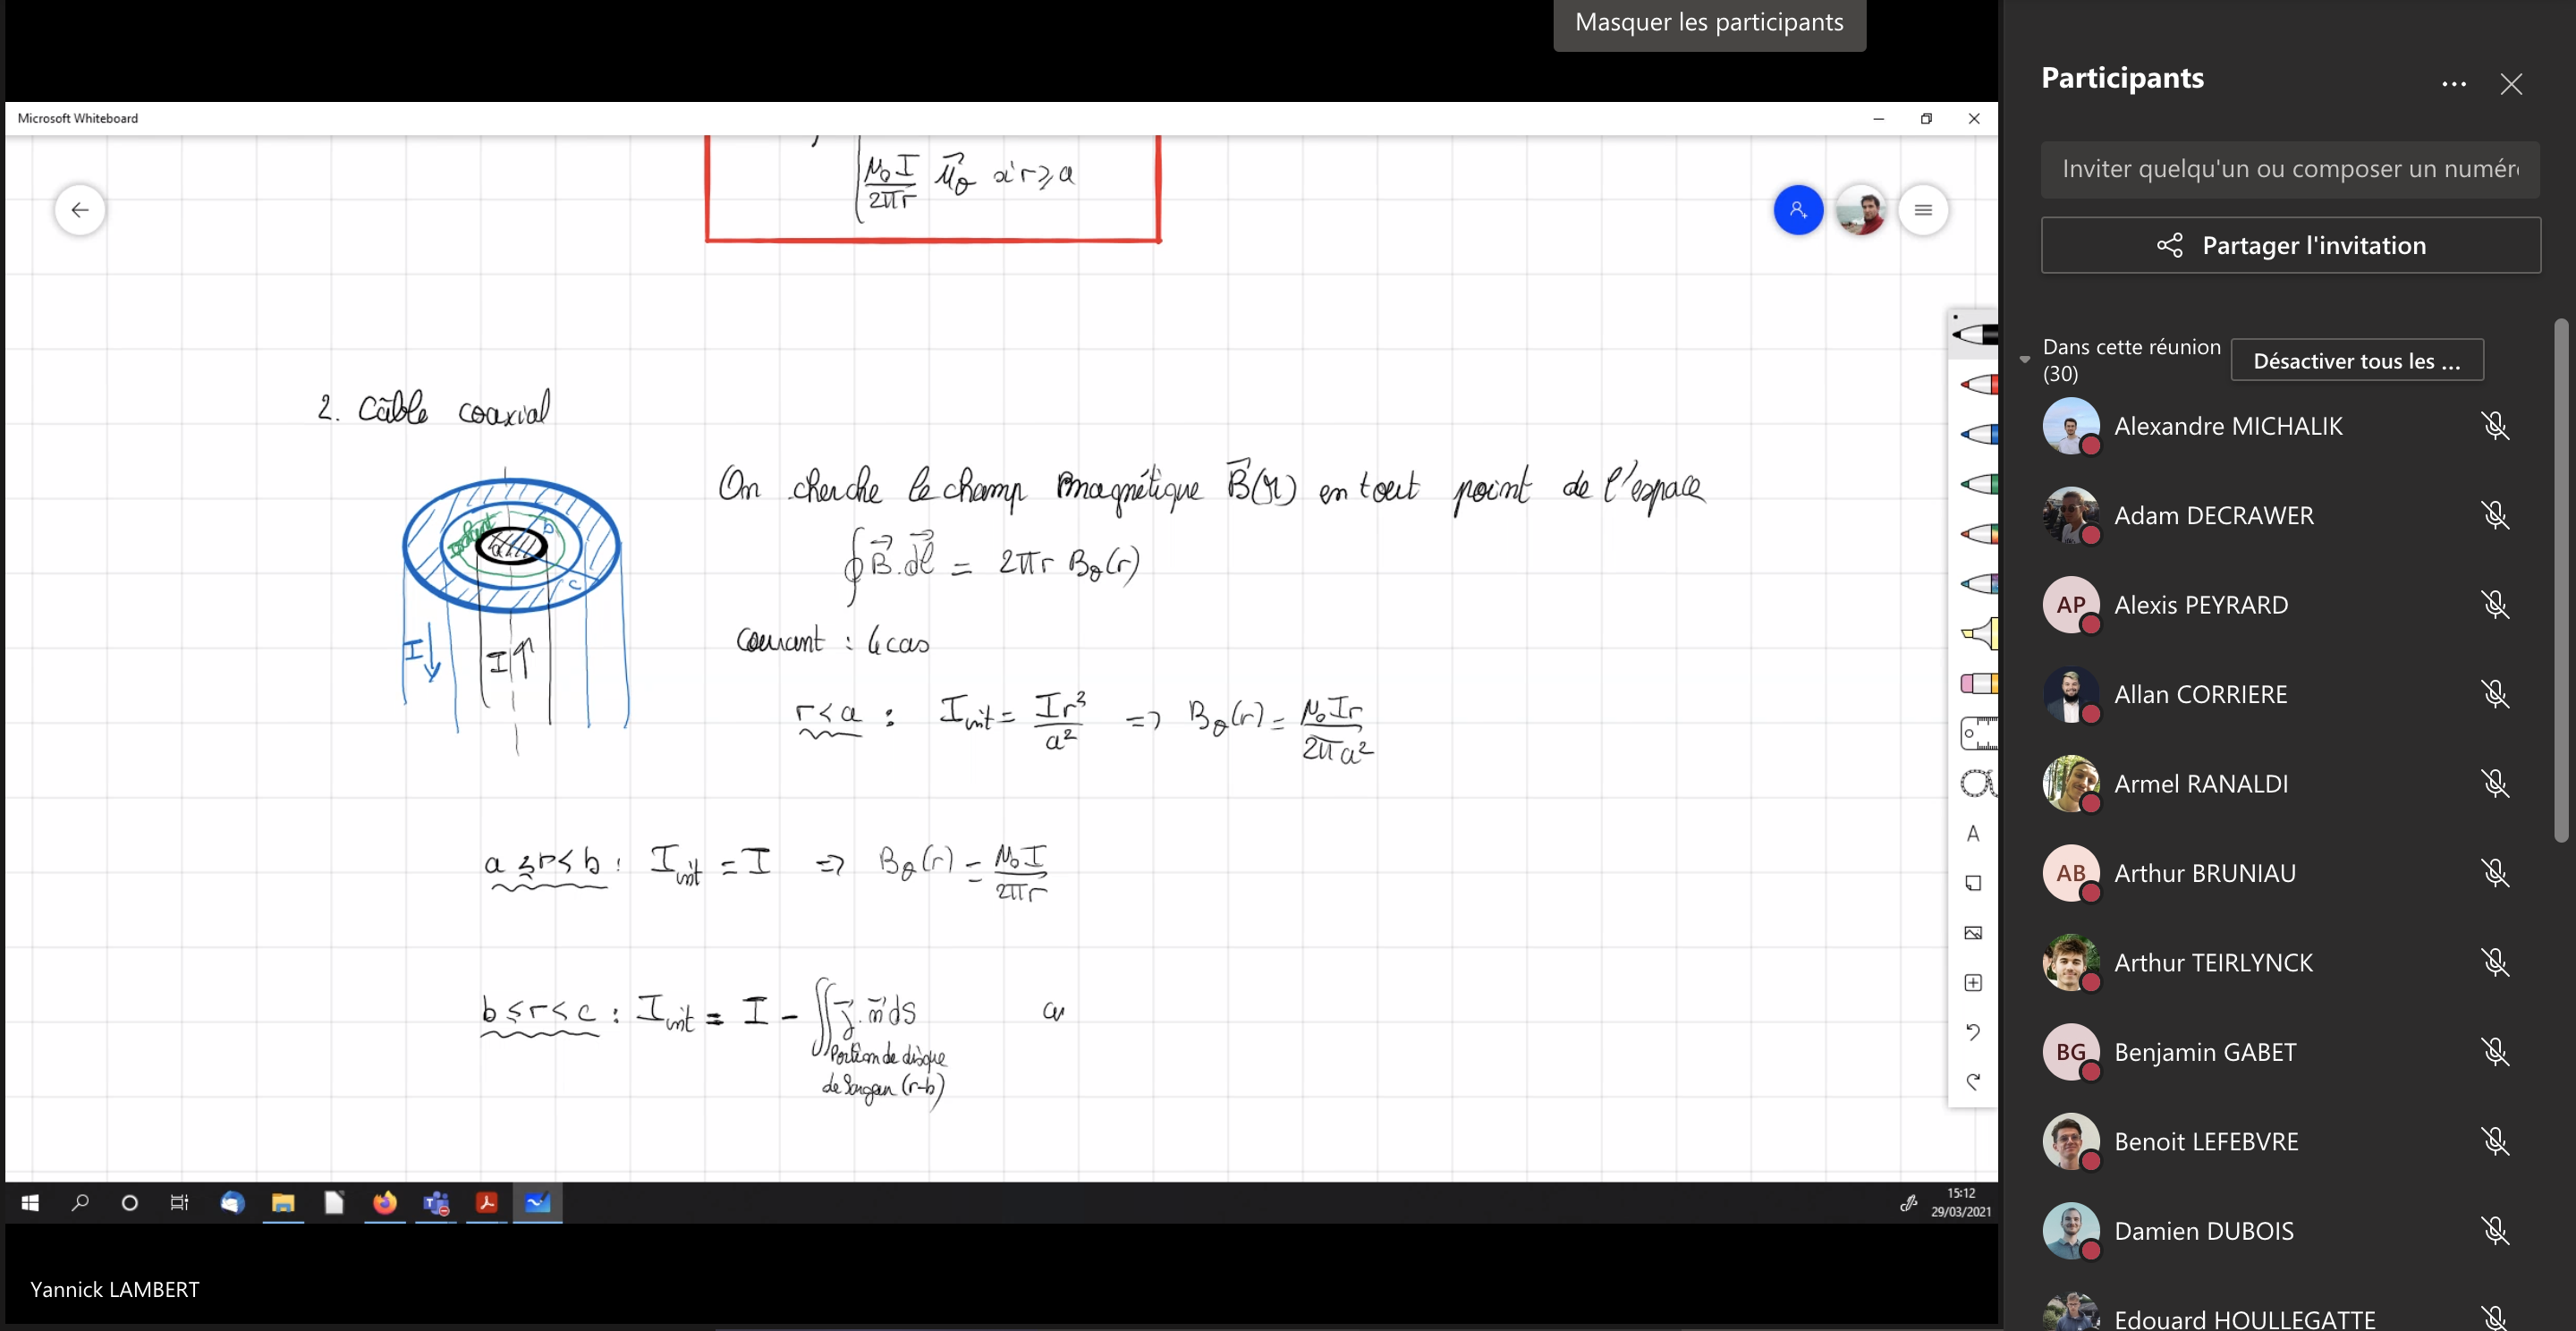 Masquer les participants
Microsoft Whiteboard
μ₀I/2πr u⃗θ si r ⩾ a
2. Câble coaxial
isolant
a
b
c
I↓
I↑
On cherche le champ magnétique B⃗(M) en tout point de l'espace
∮B⃗.dl⃗ = 2πr Bθ(r)
courant : 4 cas
r < a : I_int = Ir²/a² => Bθ(r) = μ₀Ir/2πa²
a ≤ r < b : I_int = I => Bθ(r) = μ₀I/2πr
b ≤ r < c : I_int = I - ∬j⃗.n⃗dS
Portion de disque
(r-b)
A
15:12
29/03/2021
Yannick LAMBERT
Participants
Inviter quelqu'un ou composer un numér
Partager l'invitation
Dans cette réunion
(30)
Désactiver tous les ...
Alexandre MICHALIK
Adam DECRAWER
AP Alexis PEYRARD
Allan CORRIERE
Armel RANALDI
AB Arthur BRUNIAU
Arthur TEIRLYNCK
BG Benjamin GABET
Benoit LEFEBVRE
Damien DUBOIS
Edouard HOULLEGATTE